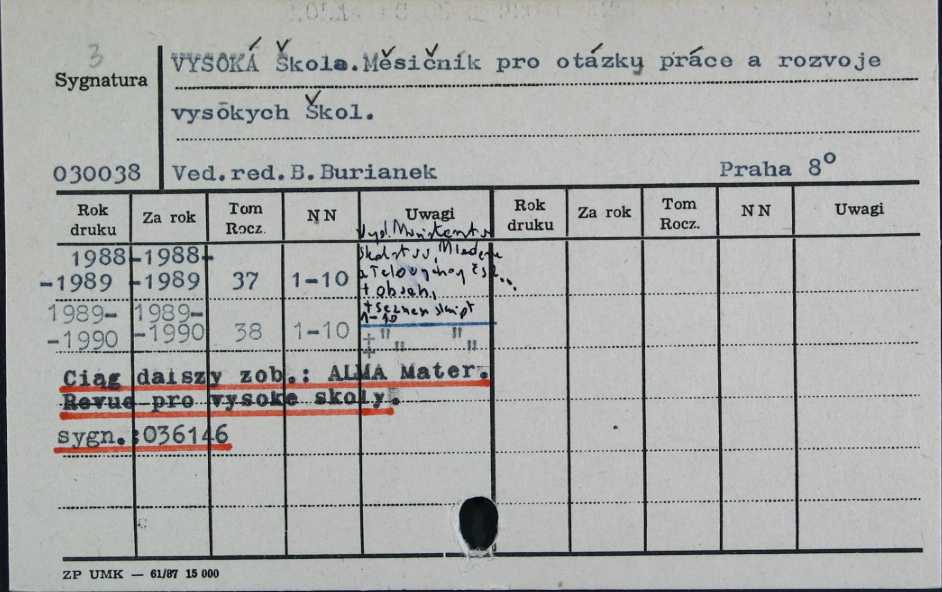 3
Sygnatura
VYSOKÁ Škola. Měsíčník pro otázky práce a rozvoje
vysokých Škol.
030038 Ved.red.B.Burianek Praha 8°
Rok druku Za rok Tom Rocz. NN Uwagi Rok druku Za rok Tom Rocz. NN Uwagi
1988- -1988-
-1989 -1989 37 1-10
+ Obsah,
1-10
1989- 1989-
-1990 -1990 38 1-10 + " "
+ " "
Ciąg dalszy zob.: ALMA Mater.
Revue pro vysoke skoly.
sygn.:036146
ZP UMK — 61/87 15 000